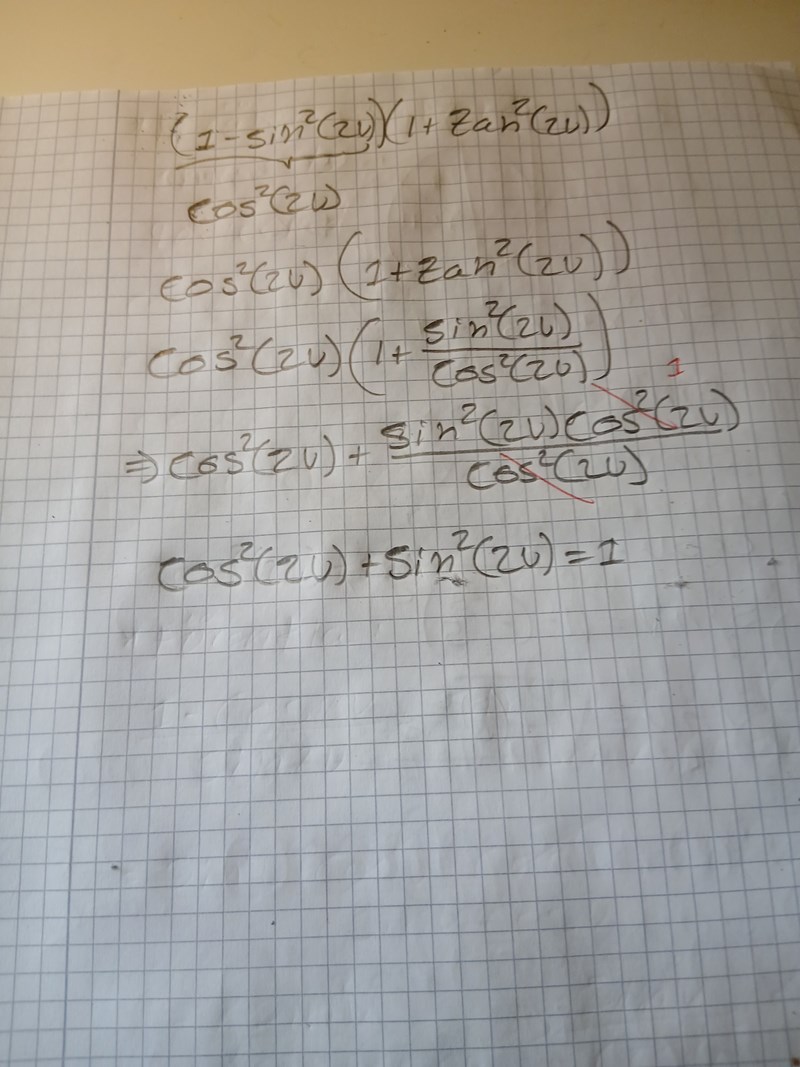 (1-sin²(2u))(1+tan²(2u))
cos²(2u)
cos²(2u)(1+tan²(2u))
cos²(2u)(1+sin²(2u)/cos²(2u))
1
⇒cos²(2u)+sin²(2u)cos²(2u)/cos²(2u)
cos²(2u)+sin²(2u)=1